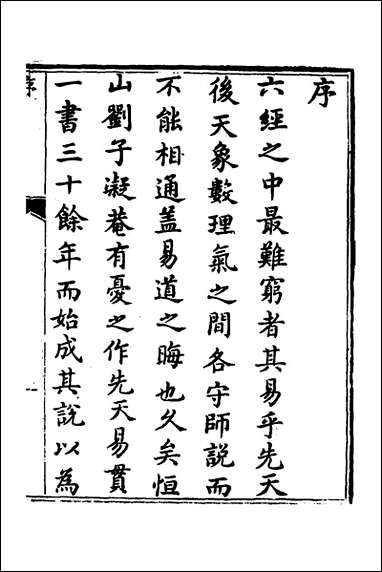 序
六經之中最難窮者其易乎先天
後天象數理氣之間各守師説而
不能相通盖易道之晦也久矣恒
山劉子凝菴有憂之作先天易貫
一書三十餘年而始成其說以為
序